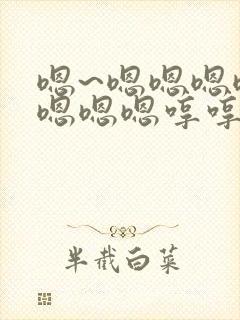 嗯~嗯嗯嗯
嗯嗯嗯哼哼
半截白菜